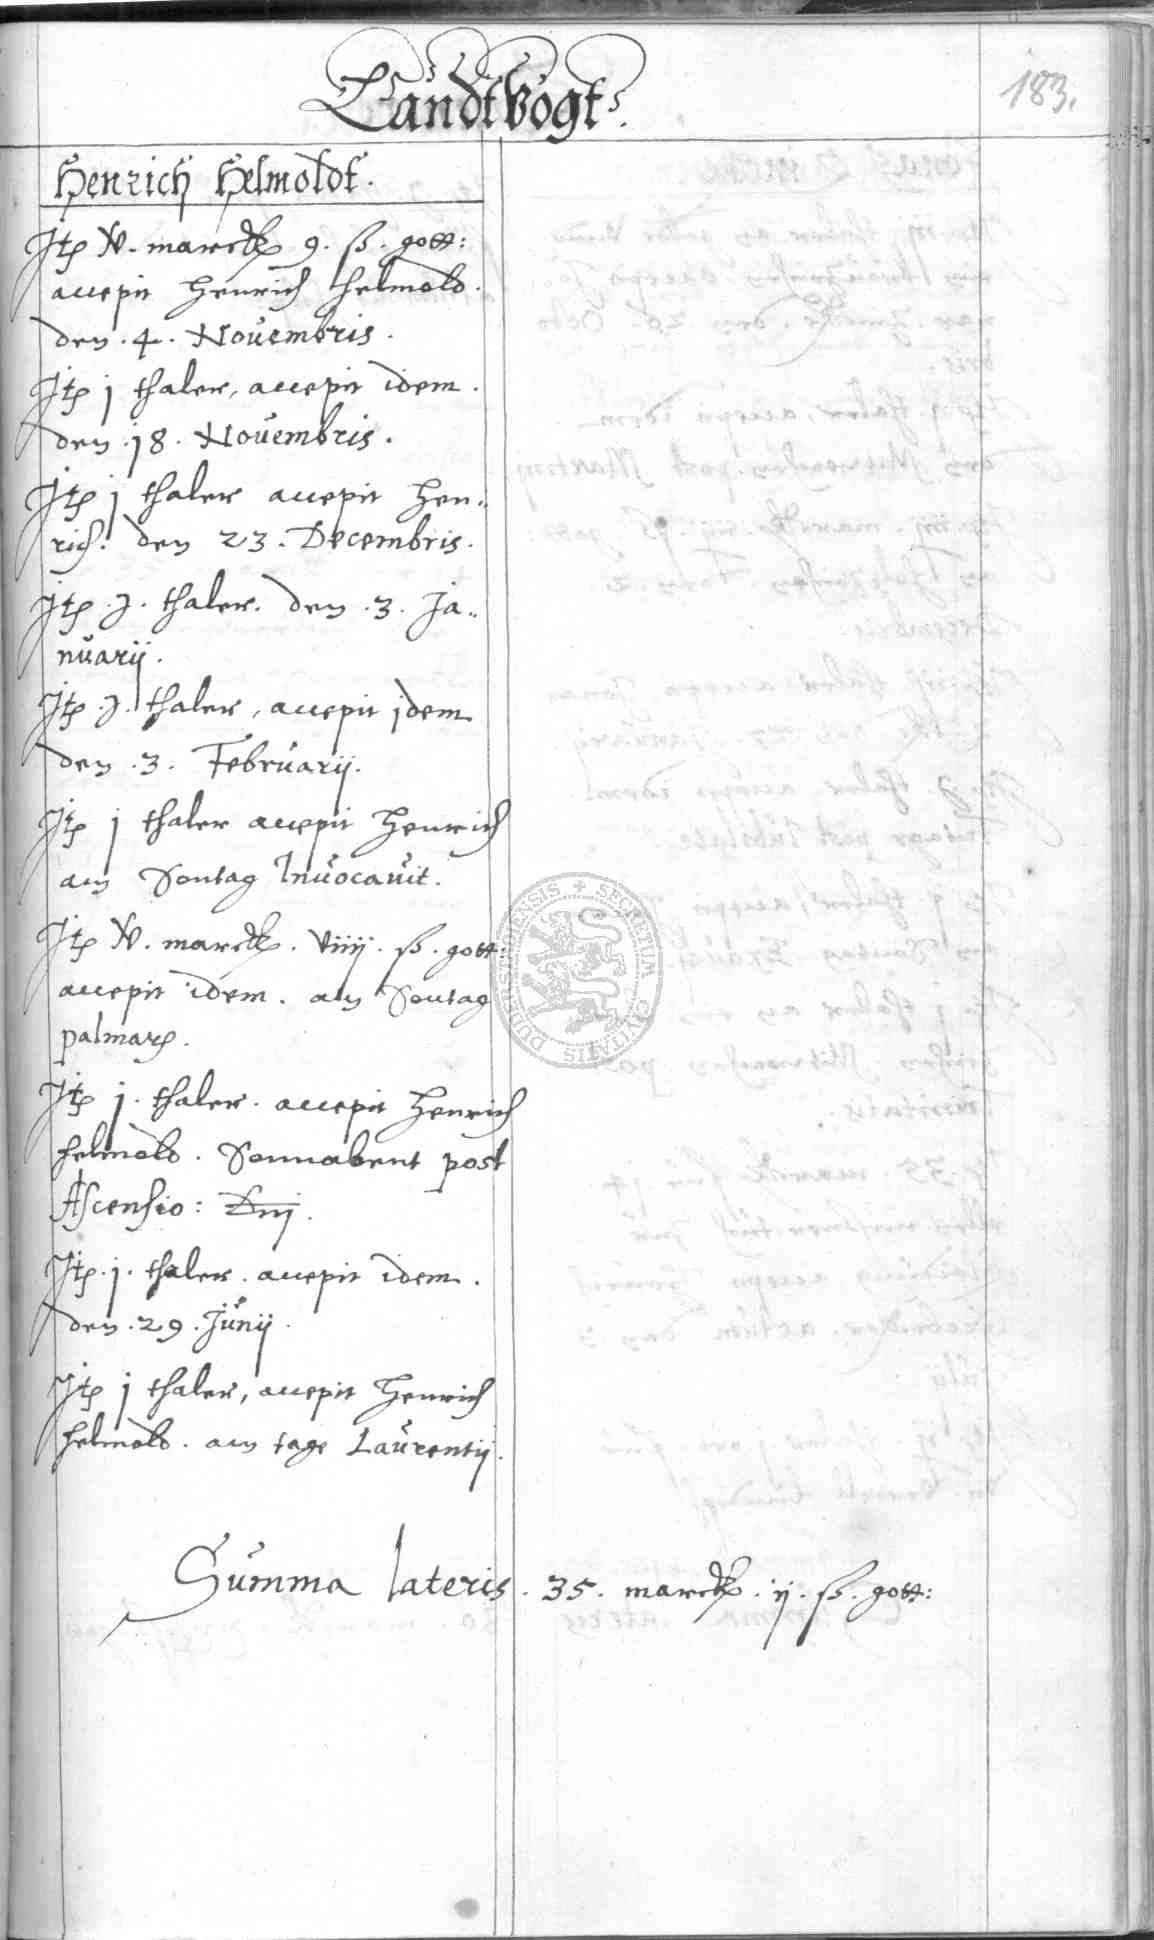 Landtvogt.
183.
Henrich Helmoldt.
Itp iv. marck 9. ß. gott:
accepit Henrich Helmold.
den .4. Novembris.
Itp j thaler, accepit idem.
den .18. Novembris.
Itp j thaler accepit Hen„
rich. den 23. Decembris.
Itp .j. thaler. den .3. Ja„
nuarij.
Itp .j. thaler, accepit idem
den .3. Februarij.
Itp j thaler accepit Henrich
am Sontag Invocavit.
Itp iv. marck. viiij. ß. gott:
accepit idem. am Sontag
palmarum.
Itp j. thaler. accepit Henrich
Helmold. Sonnabent post
Ascensio: Dnj.
Itp .j. thaler. accepit idem.
den .29. Junij.
Itp j thaler, accepit Henrich
Helmold. am tage Laurentij.
Summa lateris. 35. marck. ij. ß. gott:
SECRETUM CIVITATIS DUDERSTADENSIS